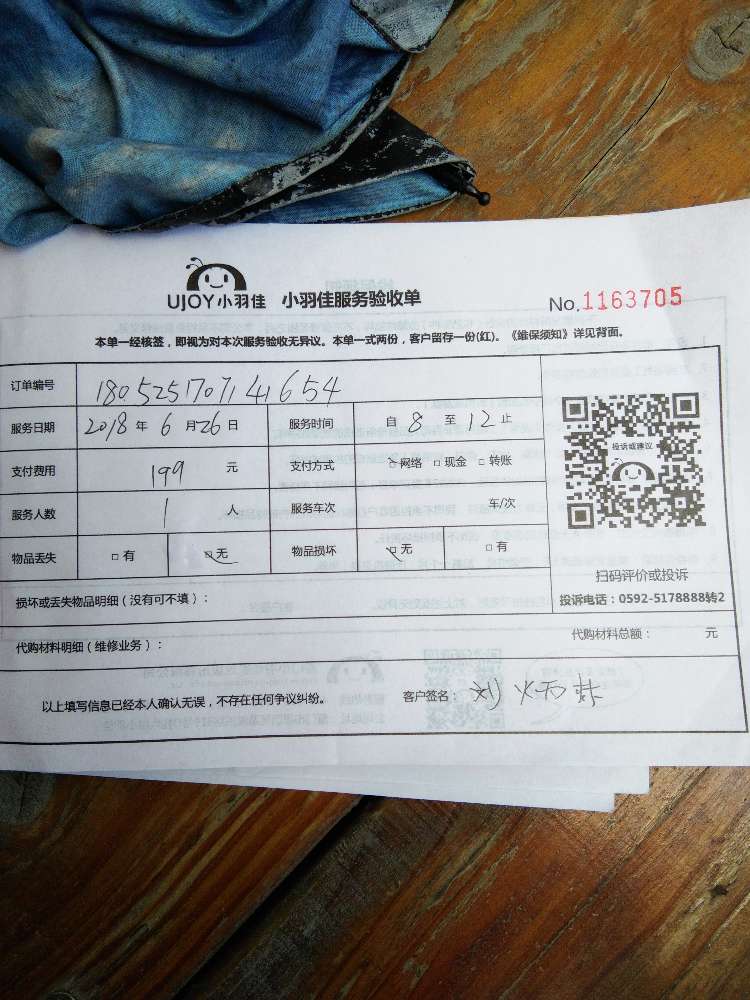 UJOY小羽佳 小羽佳服务验收单 No.1163705
本单一经核签，即视为对本次服务验收无异议。本单一式两份，客户留存一份(红)。《维保须知》详见背面。
订单编号 1805251707141654
服务日期 2018年6月26日 服务时间 自8至12止
支付费用 199元 支付方式 □网络 □现金 □转账
服务人数 1人 服务车次 车/次
物品丢失 □有 □无 物品损坏 □无 □有
投诉或建议
扫码评价或投诉
投诉电话：0592-5178888转2
损坏或丢失物品明细（没有可不填）：
代购材料明细（维修业务）： 代购材料总额： 元
以上填写信息已经本人确认无误，不存在任何争议纠纷。 客户签名：刘